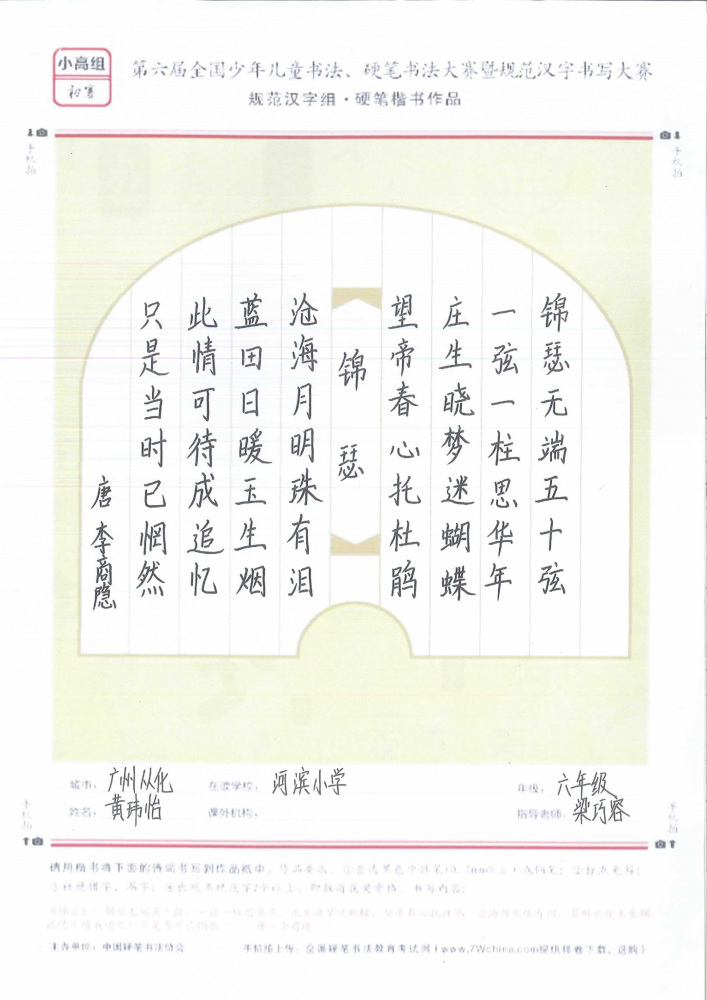 小高组
初赛
第六届全国少年儿童书法、硬笔书法大赛暨规范汉字书写大赛
规范汉字组·硬笔楷书作品
手机拍
手机拍
锦瑟无端五十弦
一弦一柱思华年
庄生晓梦迷蝴蝶
望帝春心托杜鹃
锦瑟
沧海月明珠有泪
蓝田日暖玉生烟
此情可待成追忆
只是当时已惘然
唐 李商隐
城市: 广州从化 在读学校: 河滨小学 年级: 六年级
姓名: 黄玮怡 课外机构: 指导老师: 梁巧容
手机拍
手机拍
请用楷书将下面的诗词书写到作品纸中。作品要求:
主办单位:中国硬笔书法协会 手机拍上传:全派硬笔书法教育考试网(www.7Wchina.com提供样卷下载、选购)